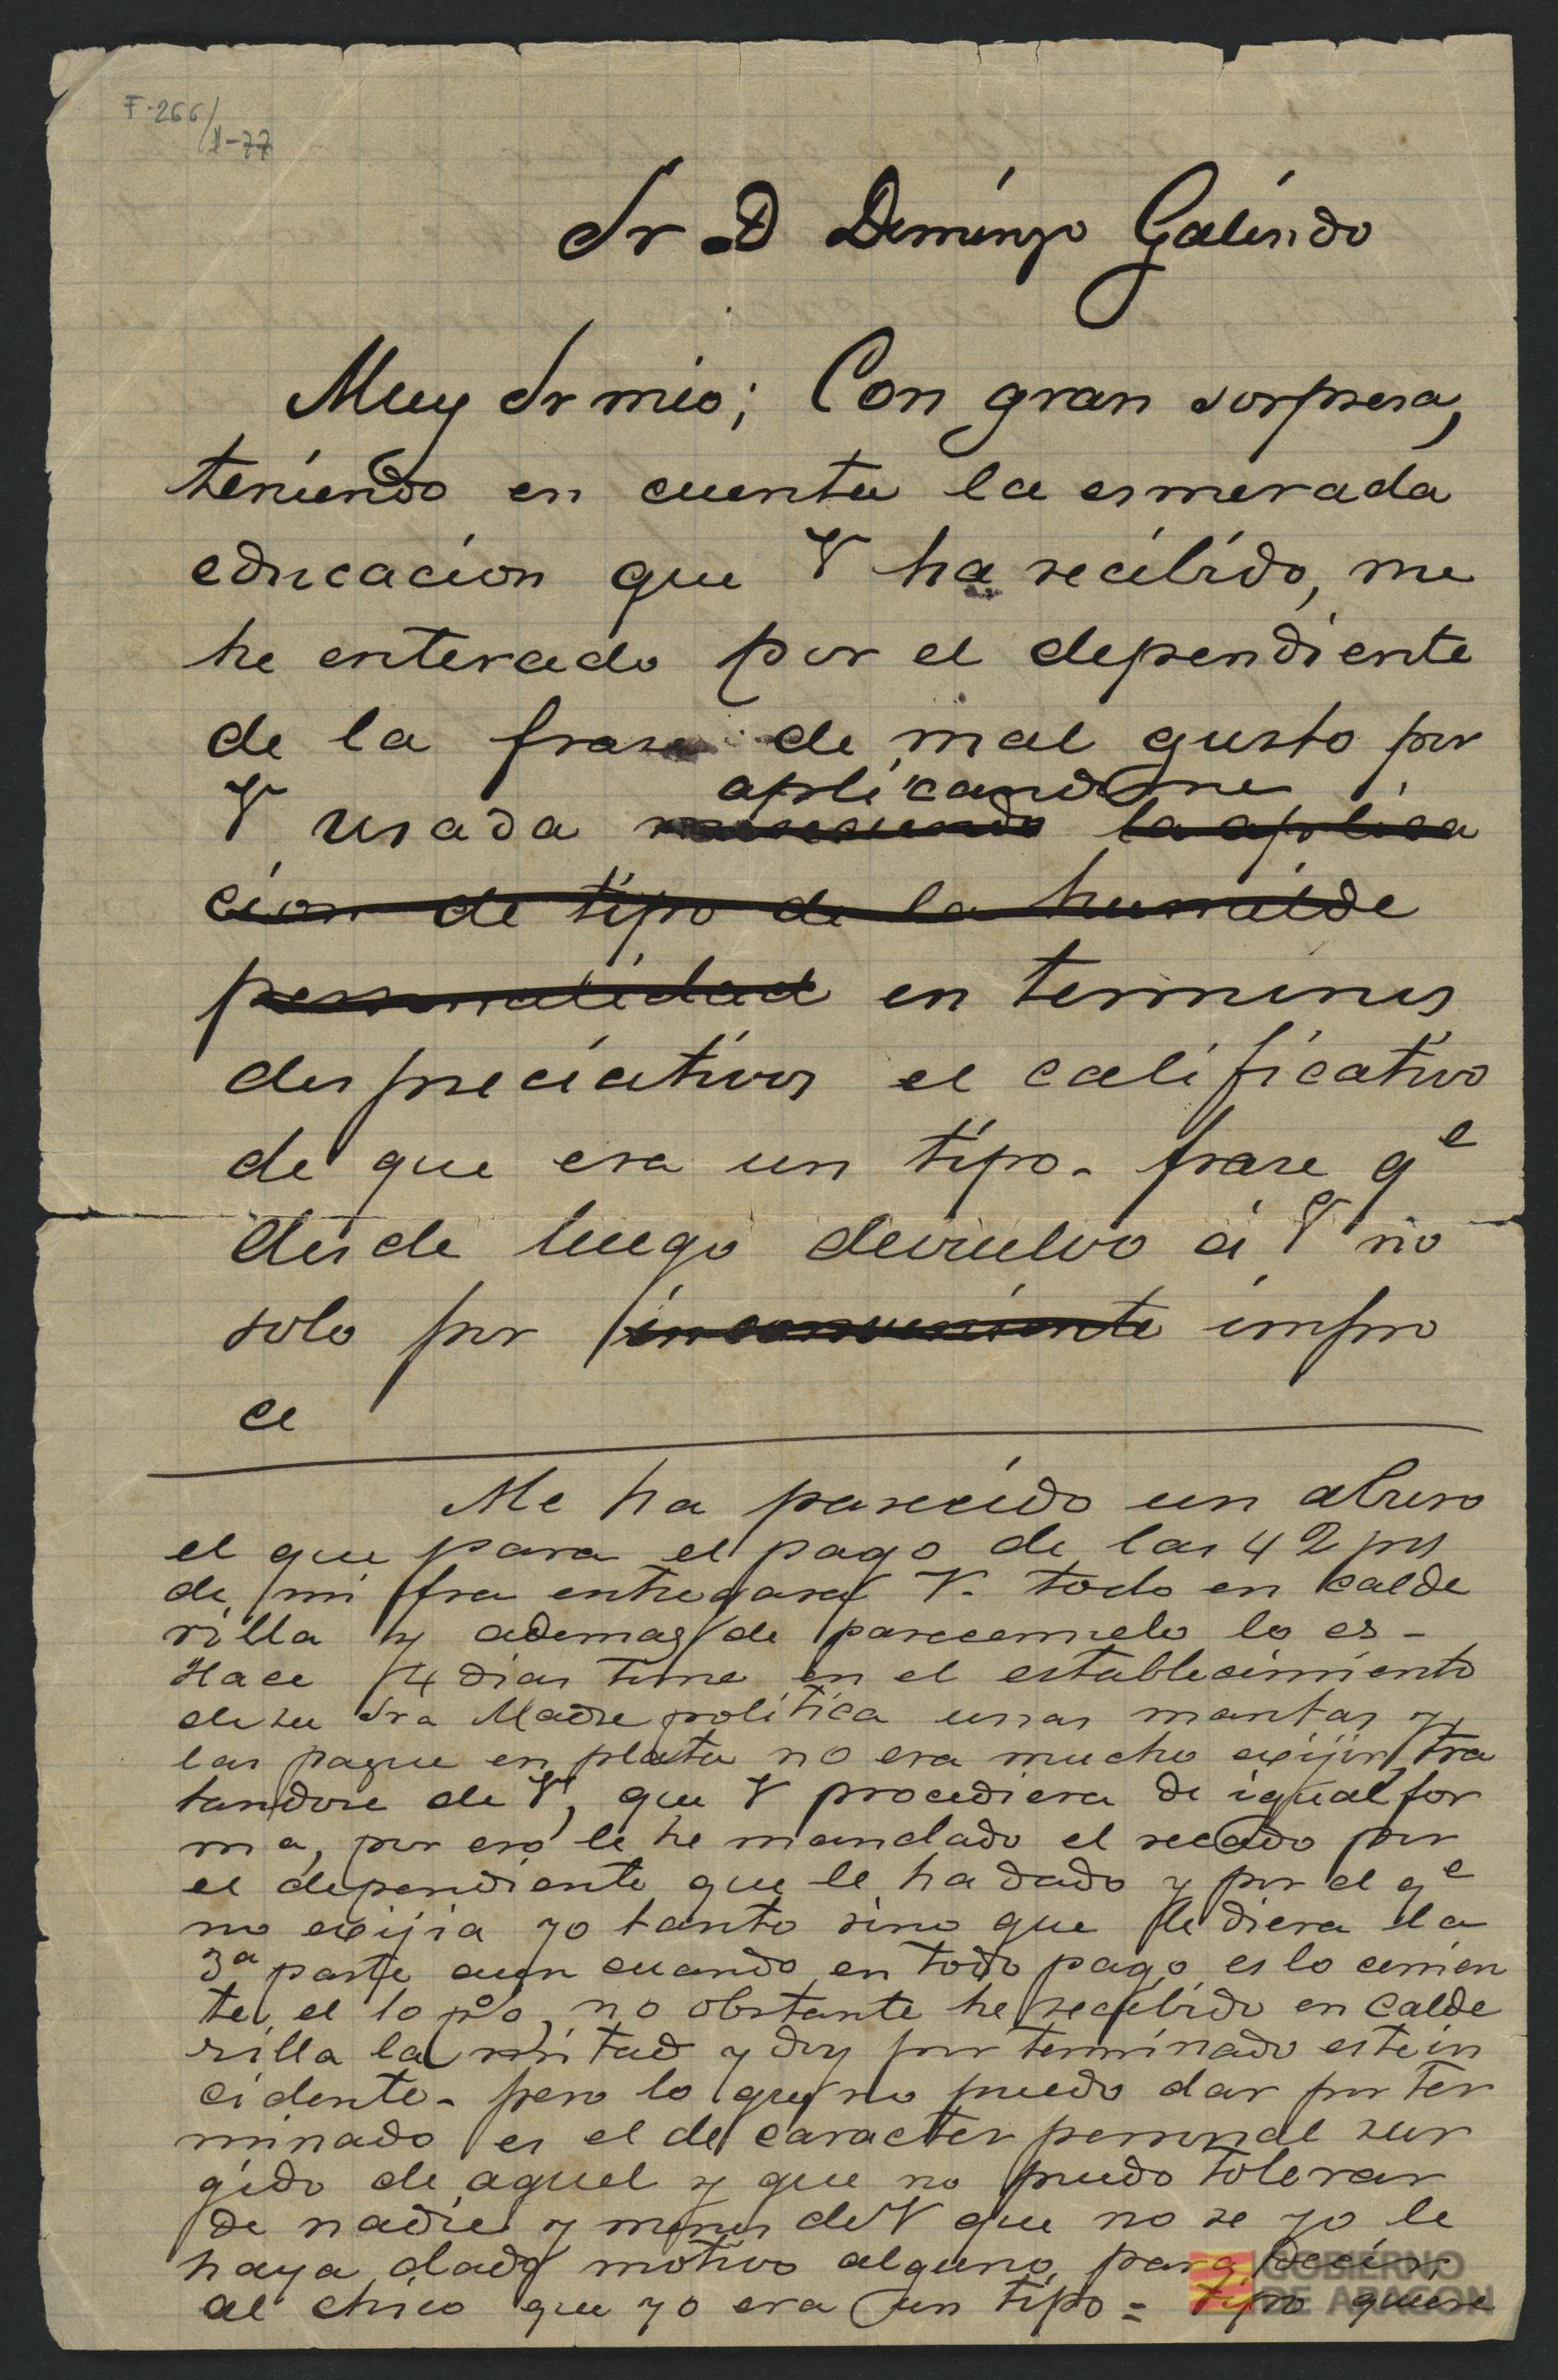 F-266/1-77
Sr D Domingo Galindo
Muy Sr mio; Con gran sorpresa,
teniendo en cuenta la esmerada
educacion que V ha recibido, me
he enterado por el dependiente
de la frase de mal gusto por
aplicandome
V usada la aplica
cion de tipo de la humilde
personalidad en terminos
despreciativos el calificativo
de que era un tipo. frase qe
desde luego devuelvo á V no
solo por inconveniente impro
ce
Me ha parecido un abuso
el que para el pago de las 42 pts
de mi fra entregara V. todo en calde
rilla y ademas de parecermelo lo es -
Hace 14 dias tome en el establecimiento
de su Sra Madre politica unas mantas y
las pague en plata no era mucho exijir, tra
tandose de V, que V procediera de igual for
ma, por eso le he mandado el recado por
el dependiente que le ha dado y por el qe
no exijia yo tanto sino que le diera la
3a parte aun cuando en todo pago es lo corrien
te, el 10 p%, no obstante he recibido en calde
rilla la mitad y doy por terminado este in
cidente - pero lo que no puedo dar por ter
minado es el de caracter personal sur
gido de aquel y que no puedo tolerar
de nadie y menos de V que no se yo le
haya dado motivo alguno para decir
al chico que yo era un tipo = tipo quiere
GOBIERNO
DE ARAGON